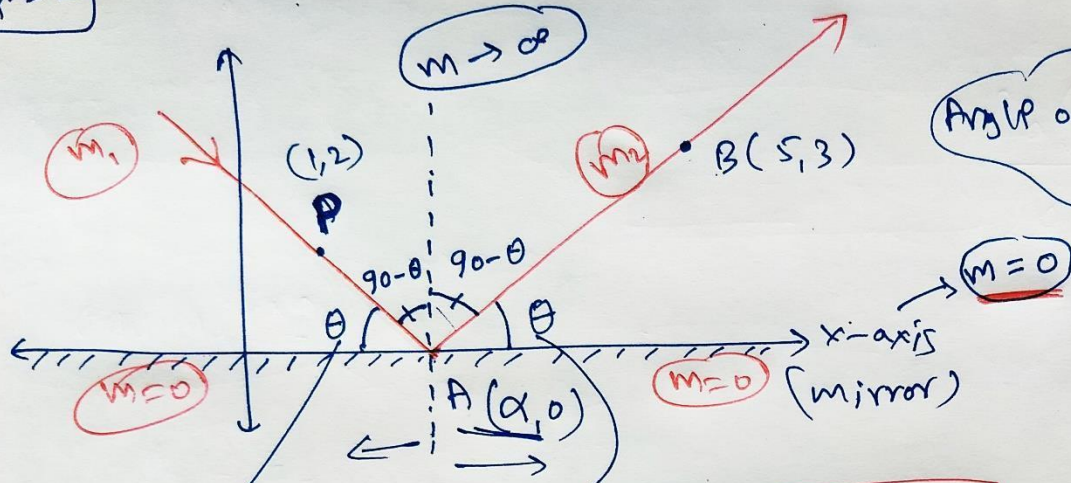 m → ∞
m₁
(1,2)
P
m₂
B(5,3)
Angle o
90-θ 90-θ
m=0
θ
θ
x-axis
(mirror)
m=0
A(α,0)
m=0